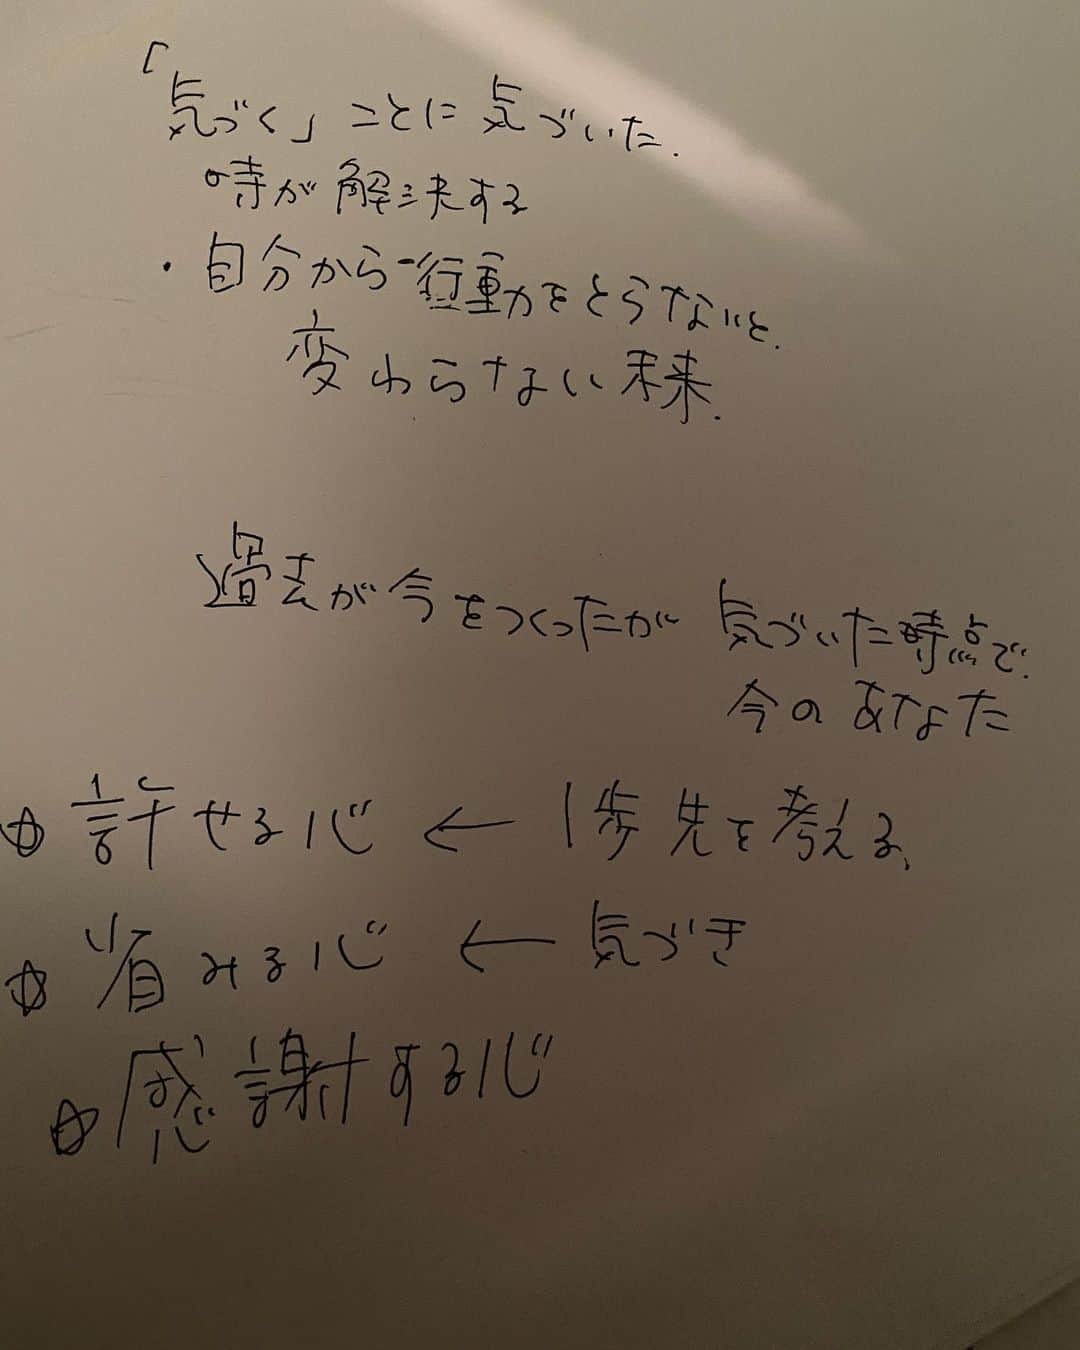 「気づく」ことに気づいた.
時が解決する
・自分から行動をとらないと.
変わらない未来.
過去が今をつくったが 気づいた時点で.
今のあなた
☆許せる心 ← 1歩先を考える、
☆省みる心 ← 気づき
☆感謝する心